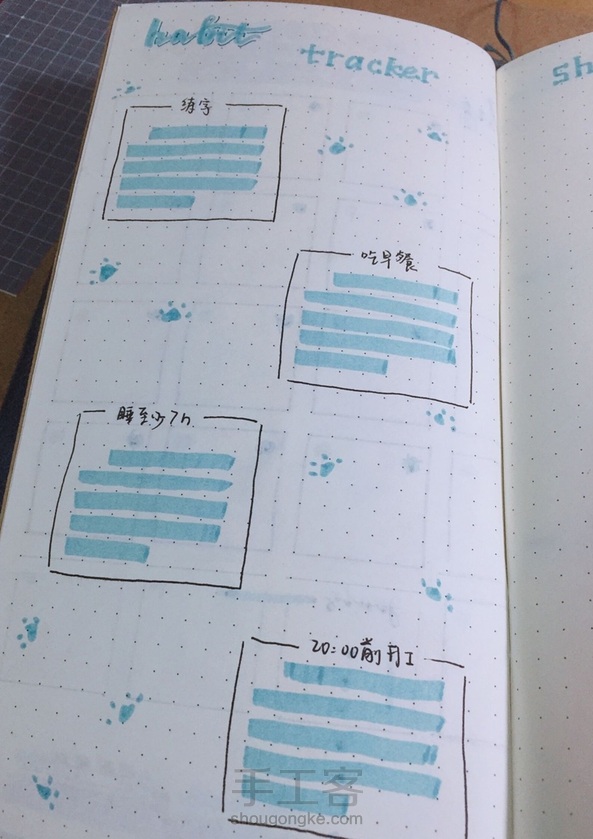 habit
tracker
sh
练字
吃早餐
睡至少7h
20:00前打工
手工客
shougongke.com